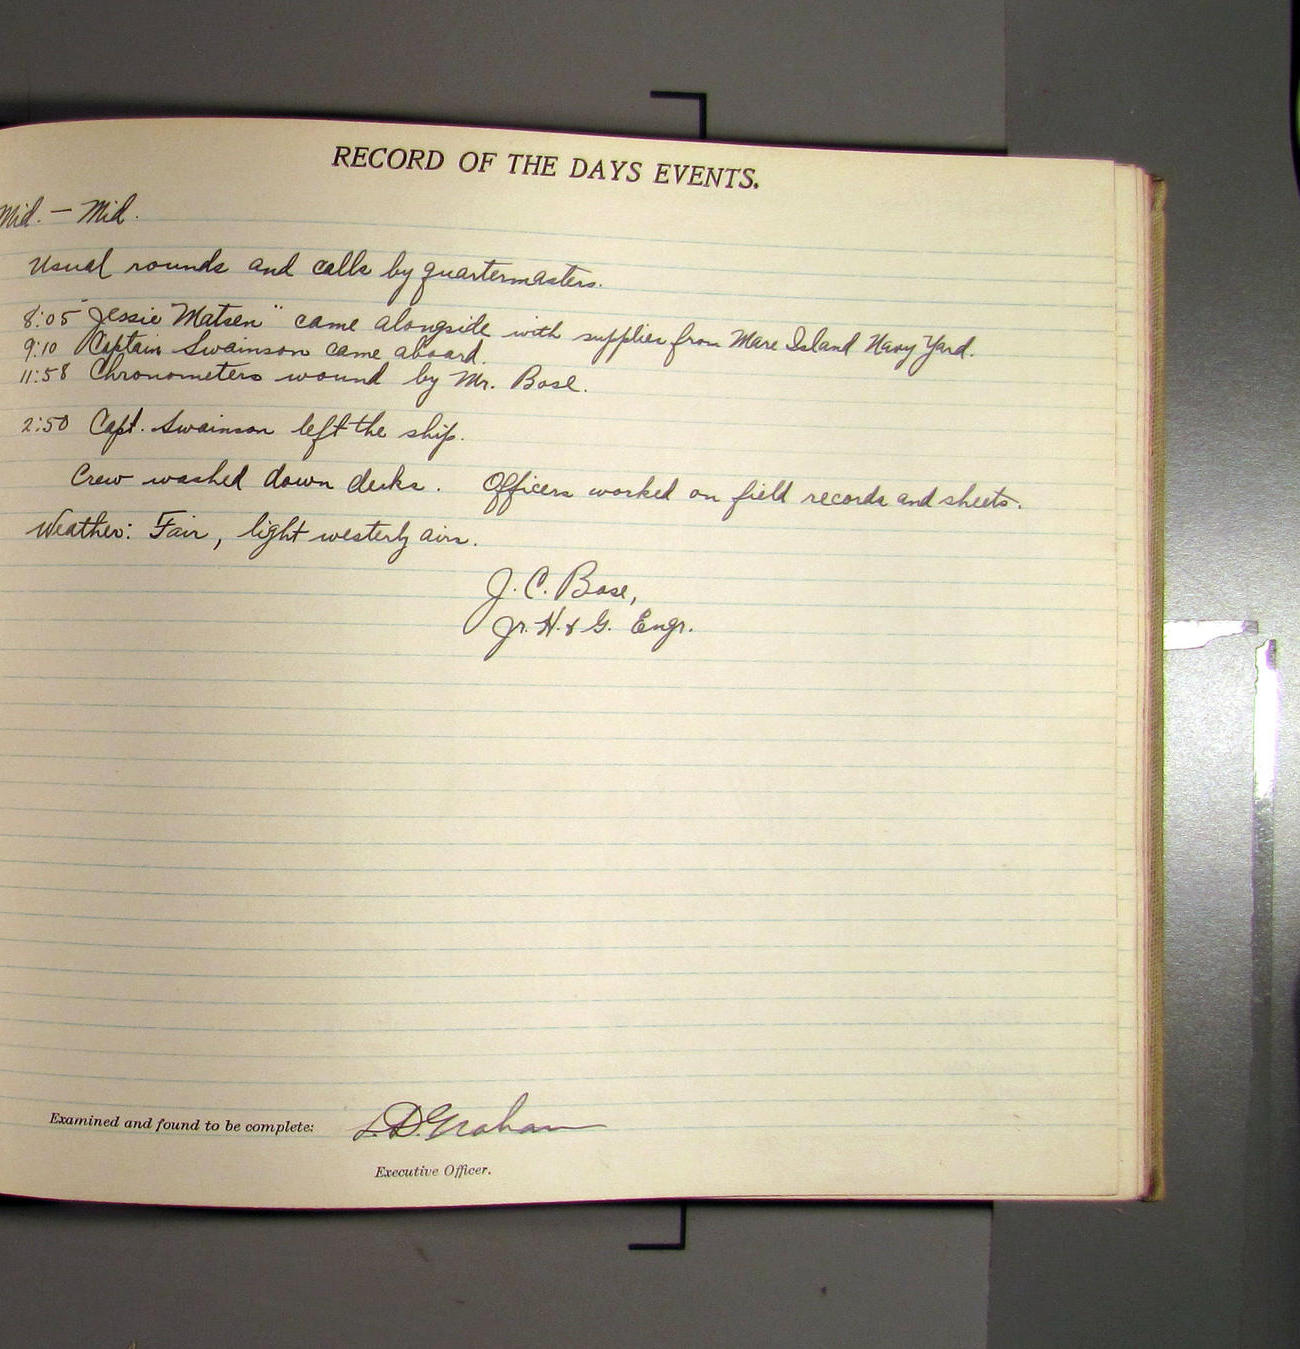 RECORD OF THE DAYS EVENTS.
Mid. — Mid.
Usual rounds and calls by quartermasters.
8:05 "Jessie Matsen" came alongside with supplies from Mare Island Navy Yard.
9:10 Captain Swainson came aboard.
11:58 Chronometers wound by Mr. Bose.
2:50 Capt. Swainson left the ship.
Crew washed down decks. Officers worked on field records and sheets.
Weather: Fair, light westerly airs.
J. C. Bose,
Jr. H. & G. Engr.
Examined and found to be complete: L.D. Graham
Executive Officer.